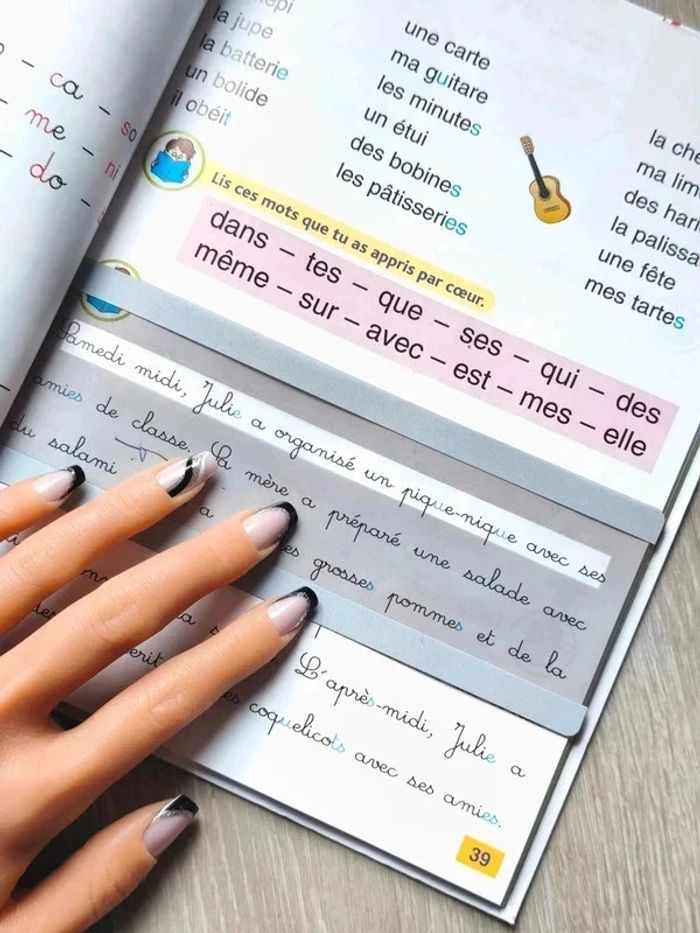 ca - so
me - ni
do -
la jupe
la batterie
un bolide
il obéit
une carte
ma guitare
les minutes
un étui
des bobines
les pâtisseries
des
une fête
mes tartes
Lis ces mots que tu as appris par cœur.
dans – tes – que – ses – qui – des
même – sur – avec – est – mes – elle
Samedi midi, Julie a organisé un pique-nique avec ses
amies de classe. Sa mère a préparé une salade avec
du salami a grosses pommes et de la
L'après-midi, Julie a
coquelicots avec ses amies.
39